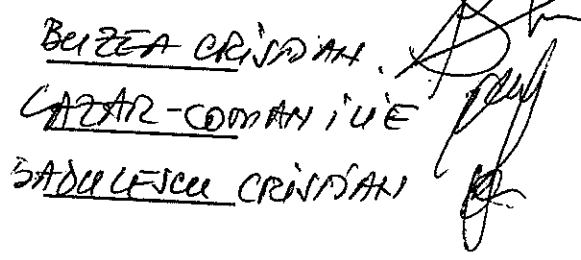 BUZEA CRISTIAN.
LAZAR-COMAN ILIE
SADULESCU CRISTIAN